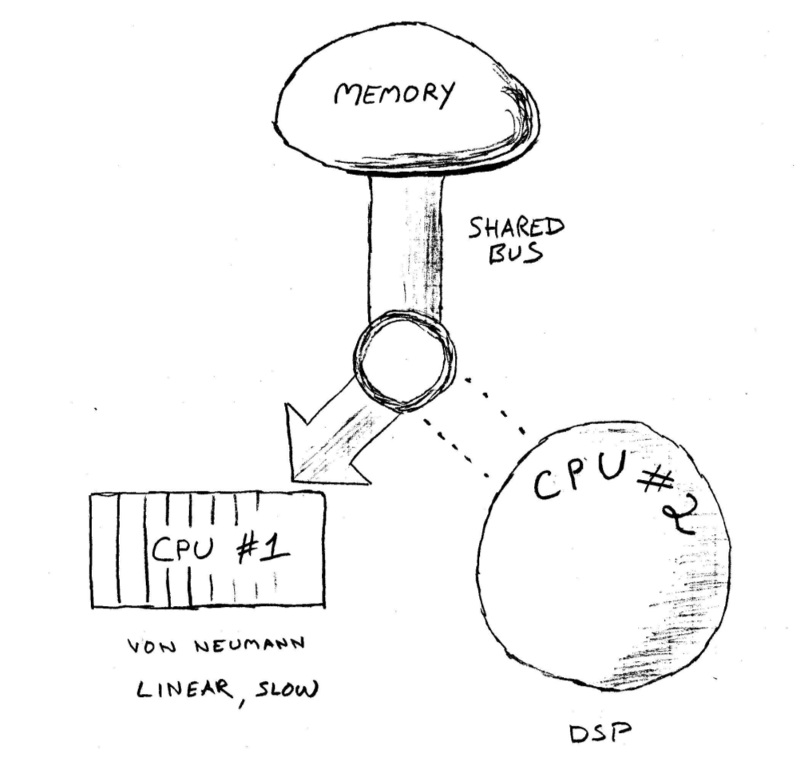 MEMORY
SHARED
BUS
CPU #1
CPU #2
VON NEUMANN
LINEAR, SLOW
DSP